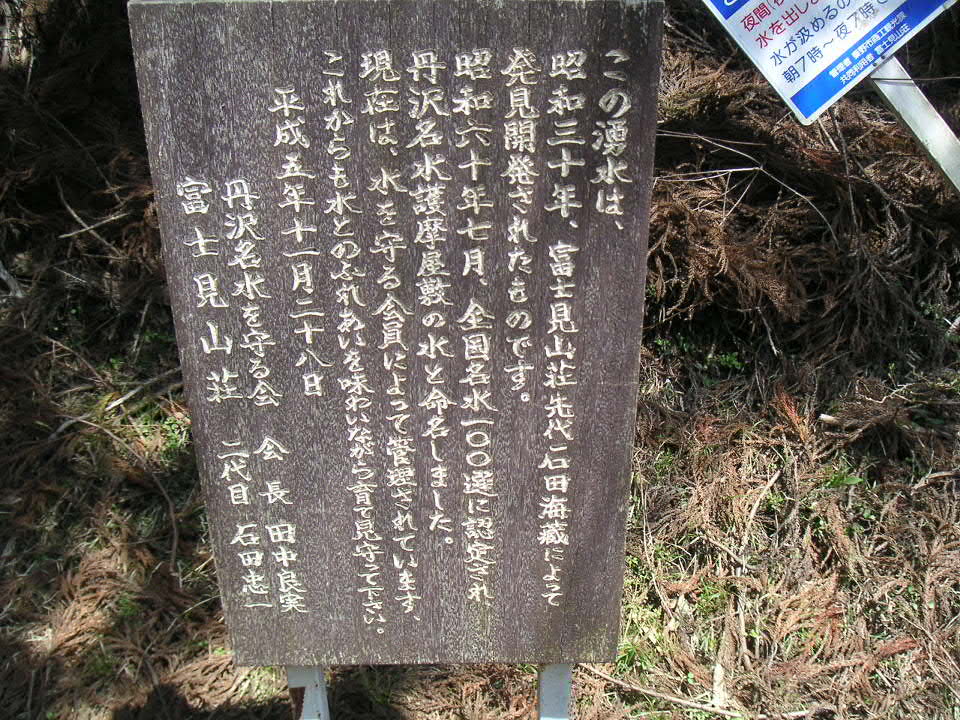 この湧水は、
昭和三十年、富士見山荘先代石田海蔵によって
発見開発されたものです。
昭和六十年七月、全国名水一〇〇選に認定され
丹沢名水護摩屋敷の水と命名しました。
現在は、水を守る会員によって管理されています、
これからも水とのふれあいを味わいながら育て見守って下さい。
平成五年十一月二十八日
丹沢名水を守る会 会長 田中良実
富士見山荘 二代目 石田忠一
水を出しま
水が汲めるの
朝7時〜夜7時
共同利用者 富士見山荘